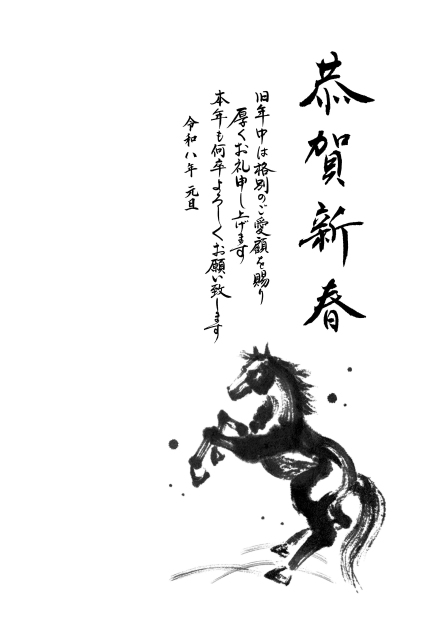 恭賀新春
旧年中は格別のご愛顧を賜り
厚くお礼申し上げます
本年も何卒よろしくお願い致します
令和八年 元旦